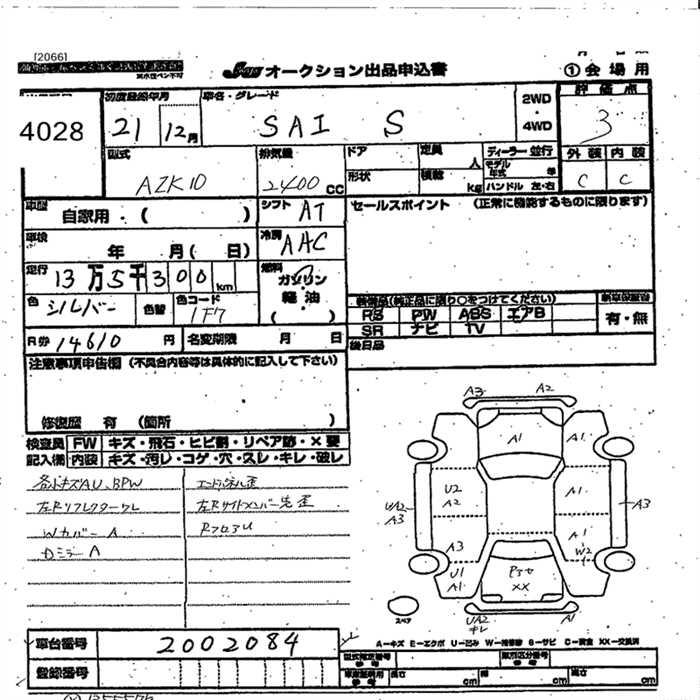 [2066]
JAA オークション出品申込書
①会場用
4028
初度登録年月
21 12月
車名・グレード
SAI S
2WD
・
4WD
評価点
3
型式
AZK10
排気量
2400 CC
ドア
形状
定員
人
積載
kg
ディーラー・並行
モデル年式 年
ハンドル 左・右
外装 内装
C C
車歴
自家用・( )
シフト AT
セールスポイント (正常に機能するものに限ります)
車検
年 月( 日)
冷房 AAC
走行
13万5千300km
燃料
ガソリン
軽油
( )
色 シルバー
色替
色コード
1F7
装備品(純正品に限り○をつけてください)
RS PW ABS エアB
SR ナビ TV
新車保証書
有・無
R券 14610 円
名変期限 月 日
後日品
注意事項申告欄 (不具合内容等は具体的に記入して下さい)
修復歴 有 (箇所 )
検査員 FW キズ・飛石・ヒビ割・リペア跡・X要
記入欄 内装 キズ・汚レ・コゲ・穴・スレ・キレ・破レ
各所キズAU、BPW
エンドパネル歪
左Rリフレクターワレ
左Rサイドメンバー先歪
Wカバー A
RフロアU
Dミラー A
A3 A2
A1 A1
U2
A2
A1
UA2
A3
A3
A3
A1
W2
U1
A1
XX
UA2
キレ
A1
スペア
A-キズ E-エクボ U-凹み W-補修跡 S-サビ C-腐食 XX-交換済
車台番号 2002084
型式指定番号
参考
類別区分番号
参考
登録番号
車庫証明用
参考
長さ cm 幅 cm 高さ cm